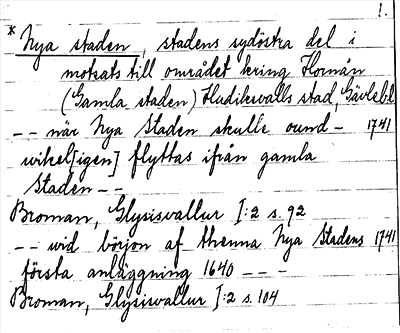 1.
* Nya staden, stadens sydöstra del i
motsats till området kring Hornån
(Gamla staden) Hudiksvalls stad, Gävlebl
-- när Nya Staden skulle ound- 1741
wikel[igen] flyttas ifrån gamla
Staden --
Broman, Glysisvallur I:2 s. 92
-- wid början af thenna Nya Stadens 1741
första anläggning 1640 ---
Broman, Glysisvallur I:2 s. 104